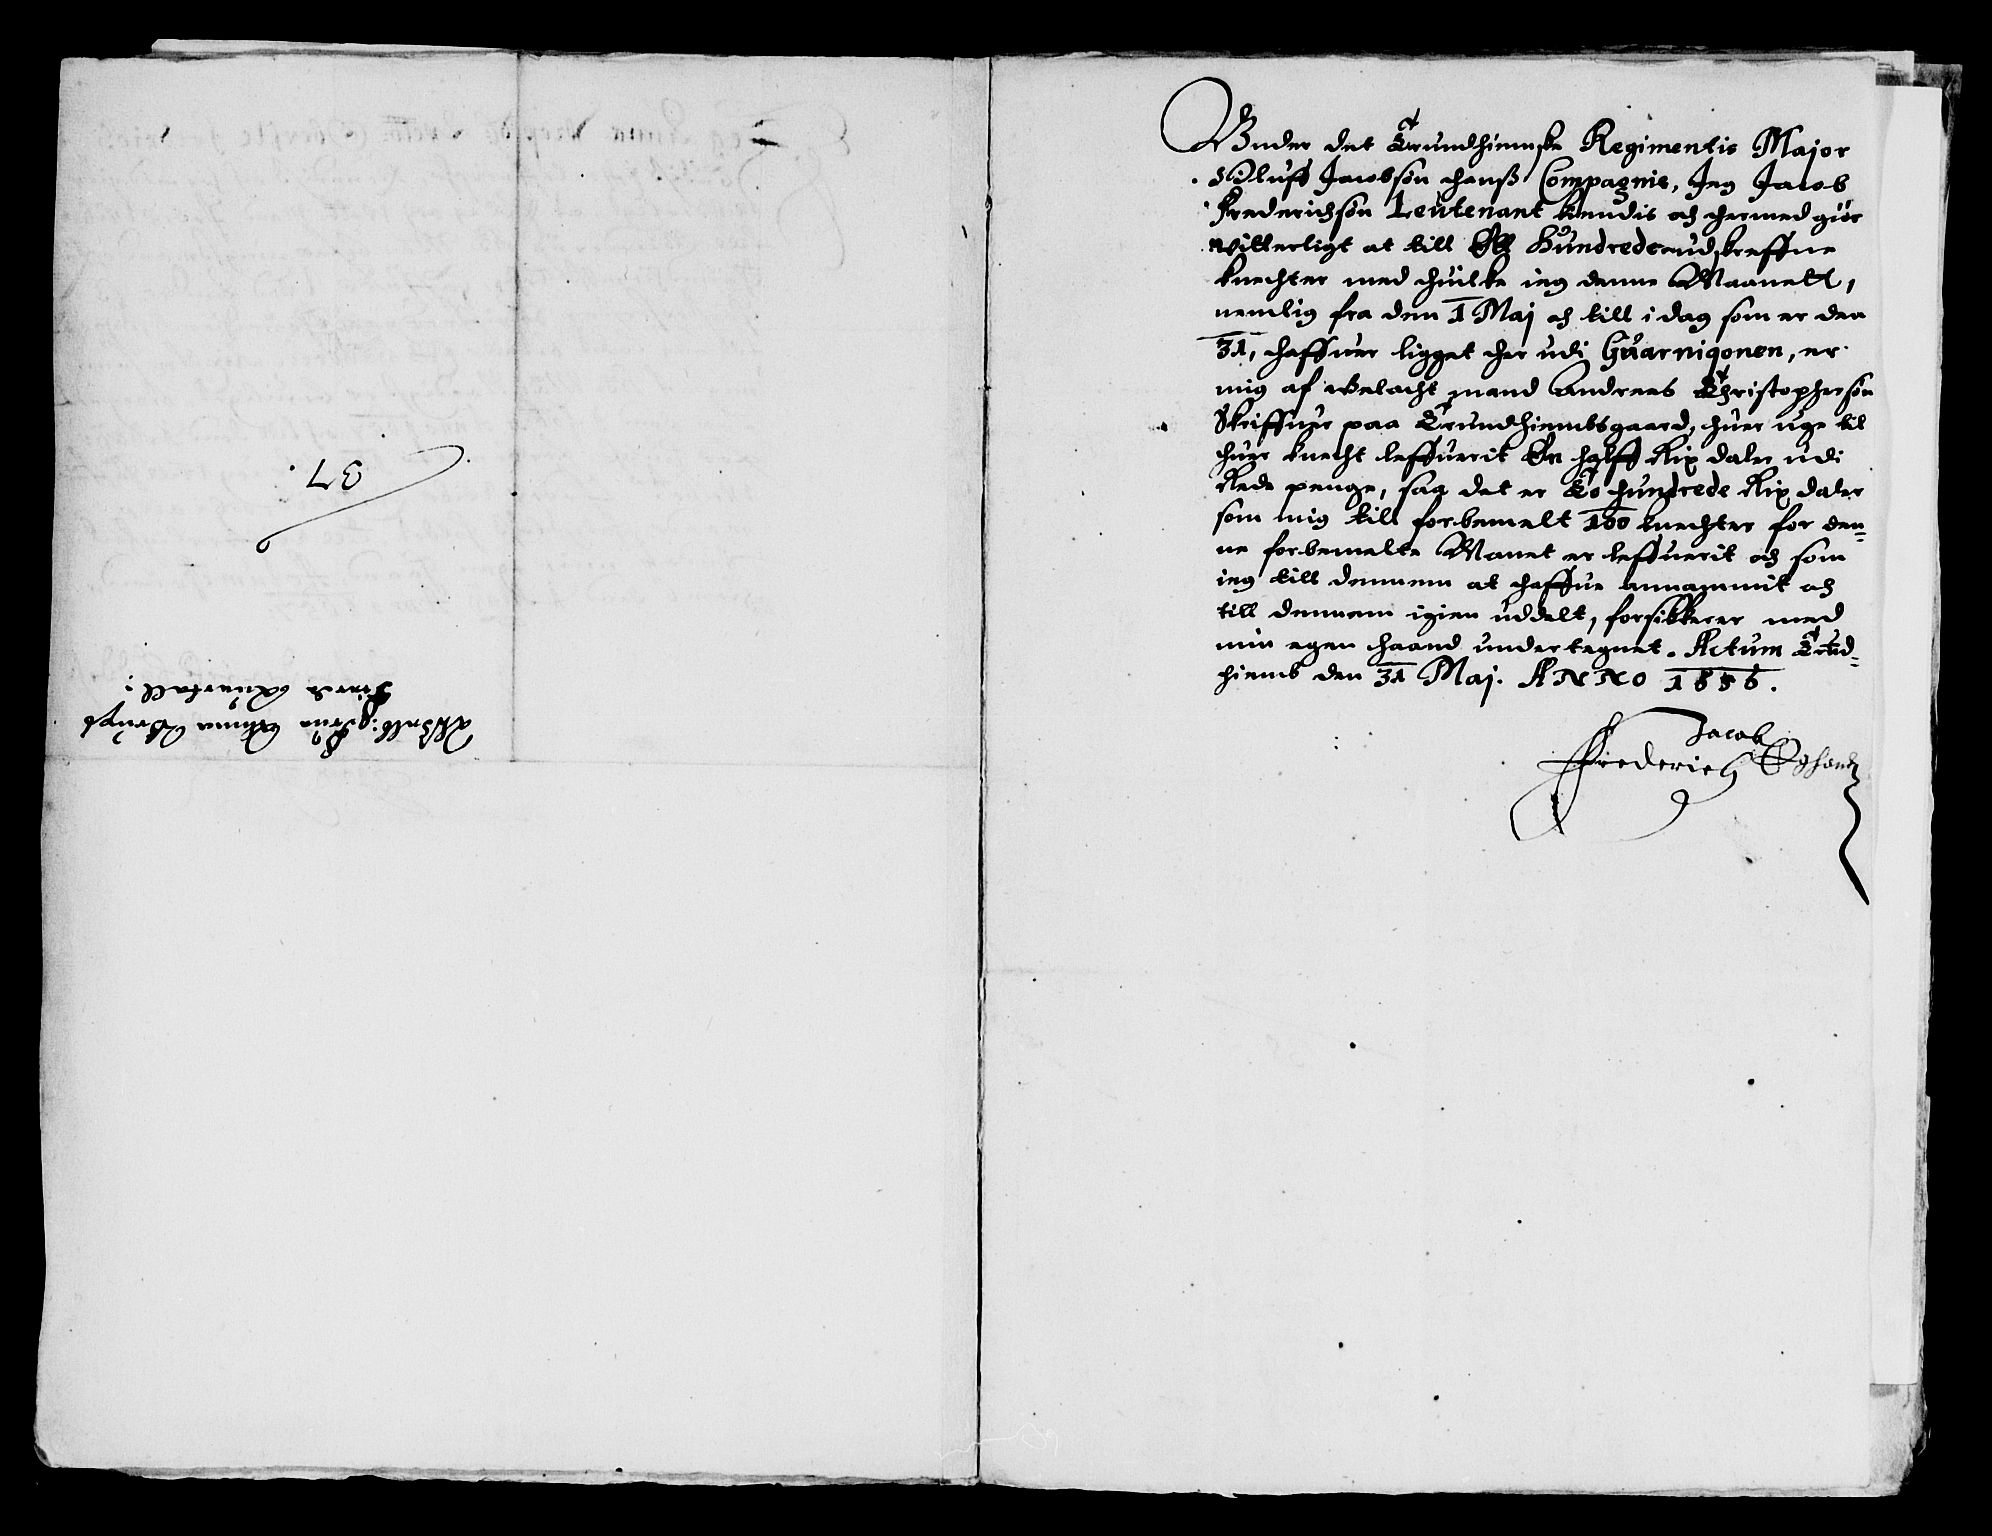 37.
Anna
Under det Trundhiemske Regimentis Major
Oluff Jacobsøn hanß Compagnie, Jeg Jacob
Frederichsøn Leutenant kiendis och hermed giør
witterligt at till Ett Hundrede udskreffne
knechter med huilke ieg denne Maanett,
nemlig fra den 1 Maj och till i dag som er den
31, haffuer ligget her udi Guarnigonen, er
mig af welacht mand Andreas Christophersøn
Skriffuer paa Trundhiembsgaard, huer uge til
huer knecht leffuerit En halff Rix daler udi
Rede penge, saa det er To hundrede Rix daler
som mig till forbemelt 100 knechter for den=
ne forbemelte Manet er leffuerit och som
ieg till dennem at haffue annammit och
till dennem igien uddelt, forsikkerer med
min egen haand undertegnet. Actum Trund=
hiemb den 31 Maj. ANNO 1656.
Jacob
Frederich